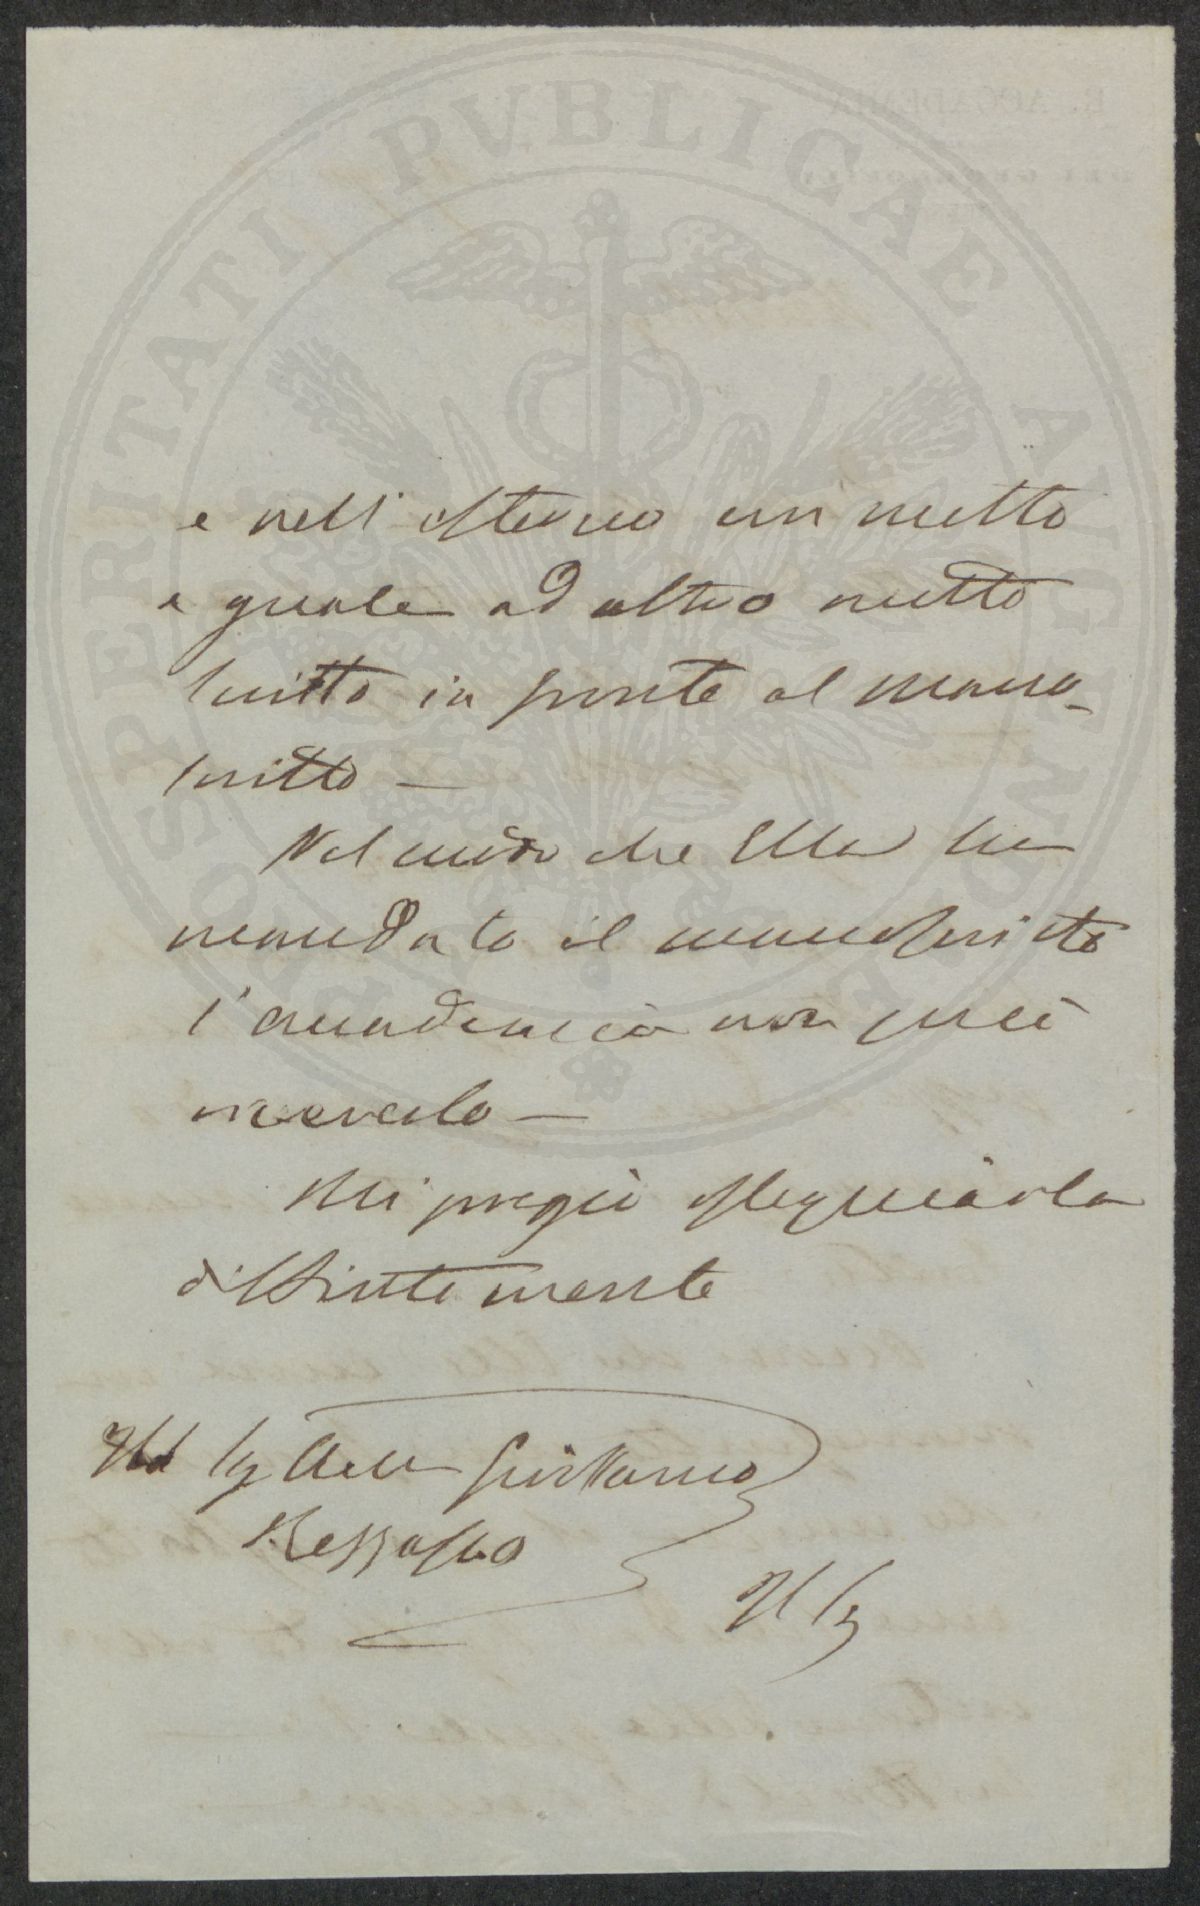 PROSPERITATI PVBLICAE AVGENDAE
e nell'esterno un motto
eguale ad altro motto
scritto in fronte al mano-
scritto —
Nel modo che Ella ha
mandato il manoscritto
l'accademia non può
riceverlo —
Mi pregio ossequiarla
distintamente
Ill Sig Avv Girolamo